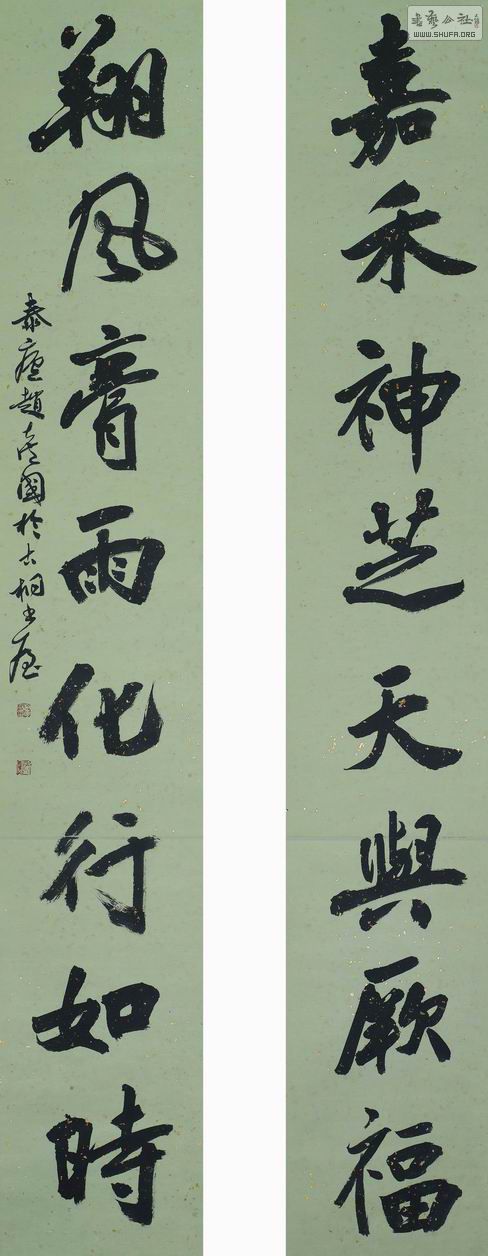 嘉禾神芝天與厥福
翔風膏雨化行如時
泰廬趙國於古桐書屋
書藝公社
WWW.SHUFA.ORG